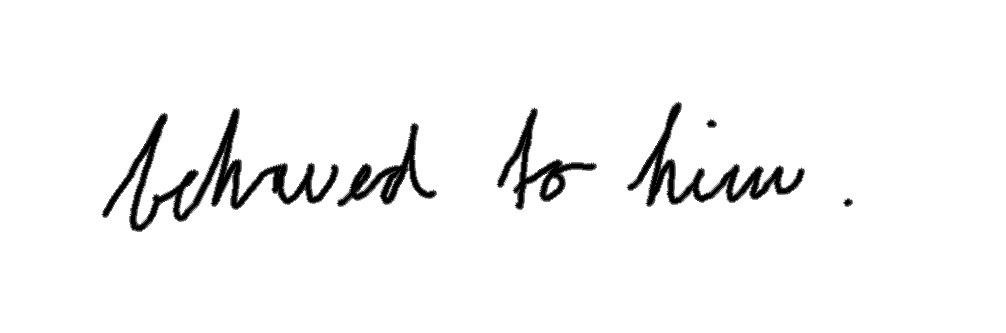 behaved to him .